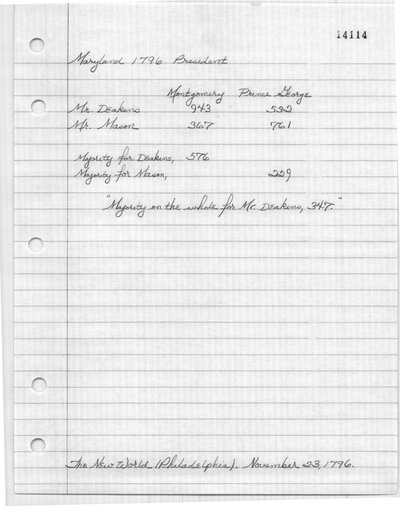 14114
Maryland 1796 President
Montgomery Prince George
Mr. Deakins 943 532
Mr. Mason 367 761
Majority for Deakins, 576
Majority for Mason, 229
"Majority on the whole for Mr. Deakins, 347."
The New World (Philadelphia). November 23, 1796.